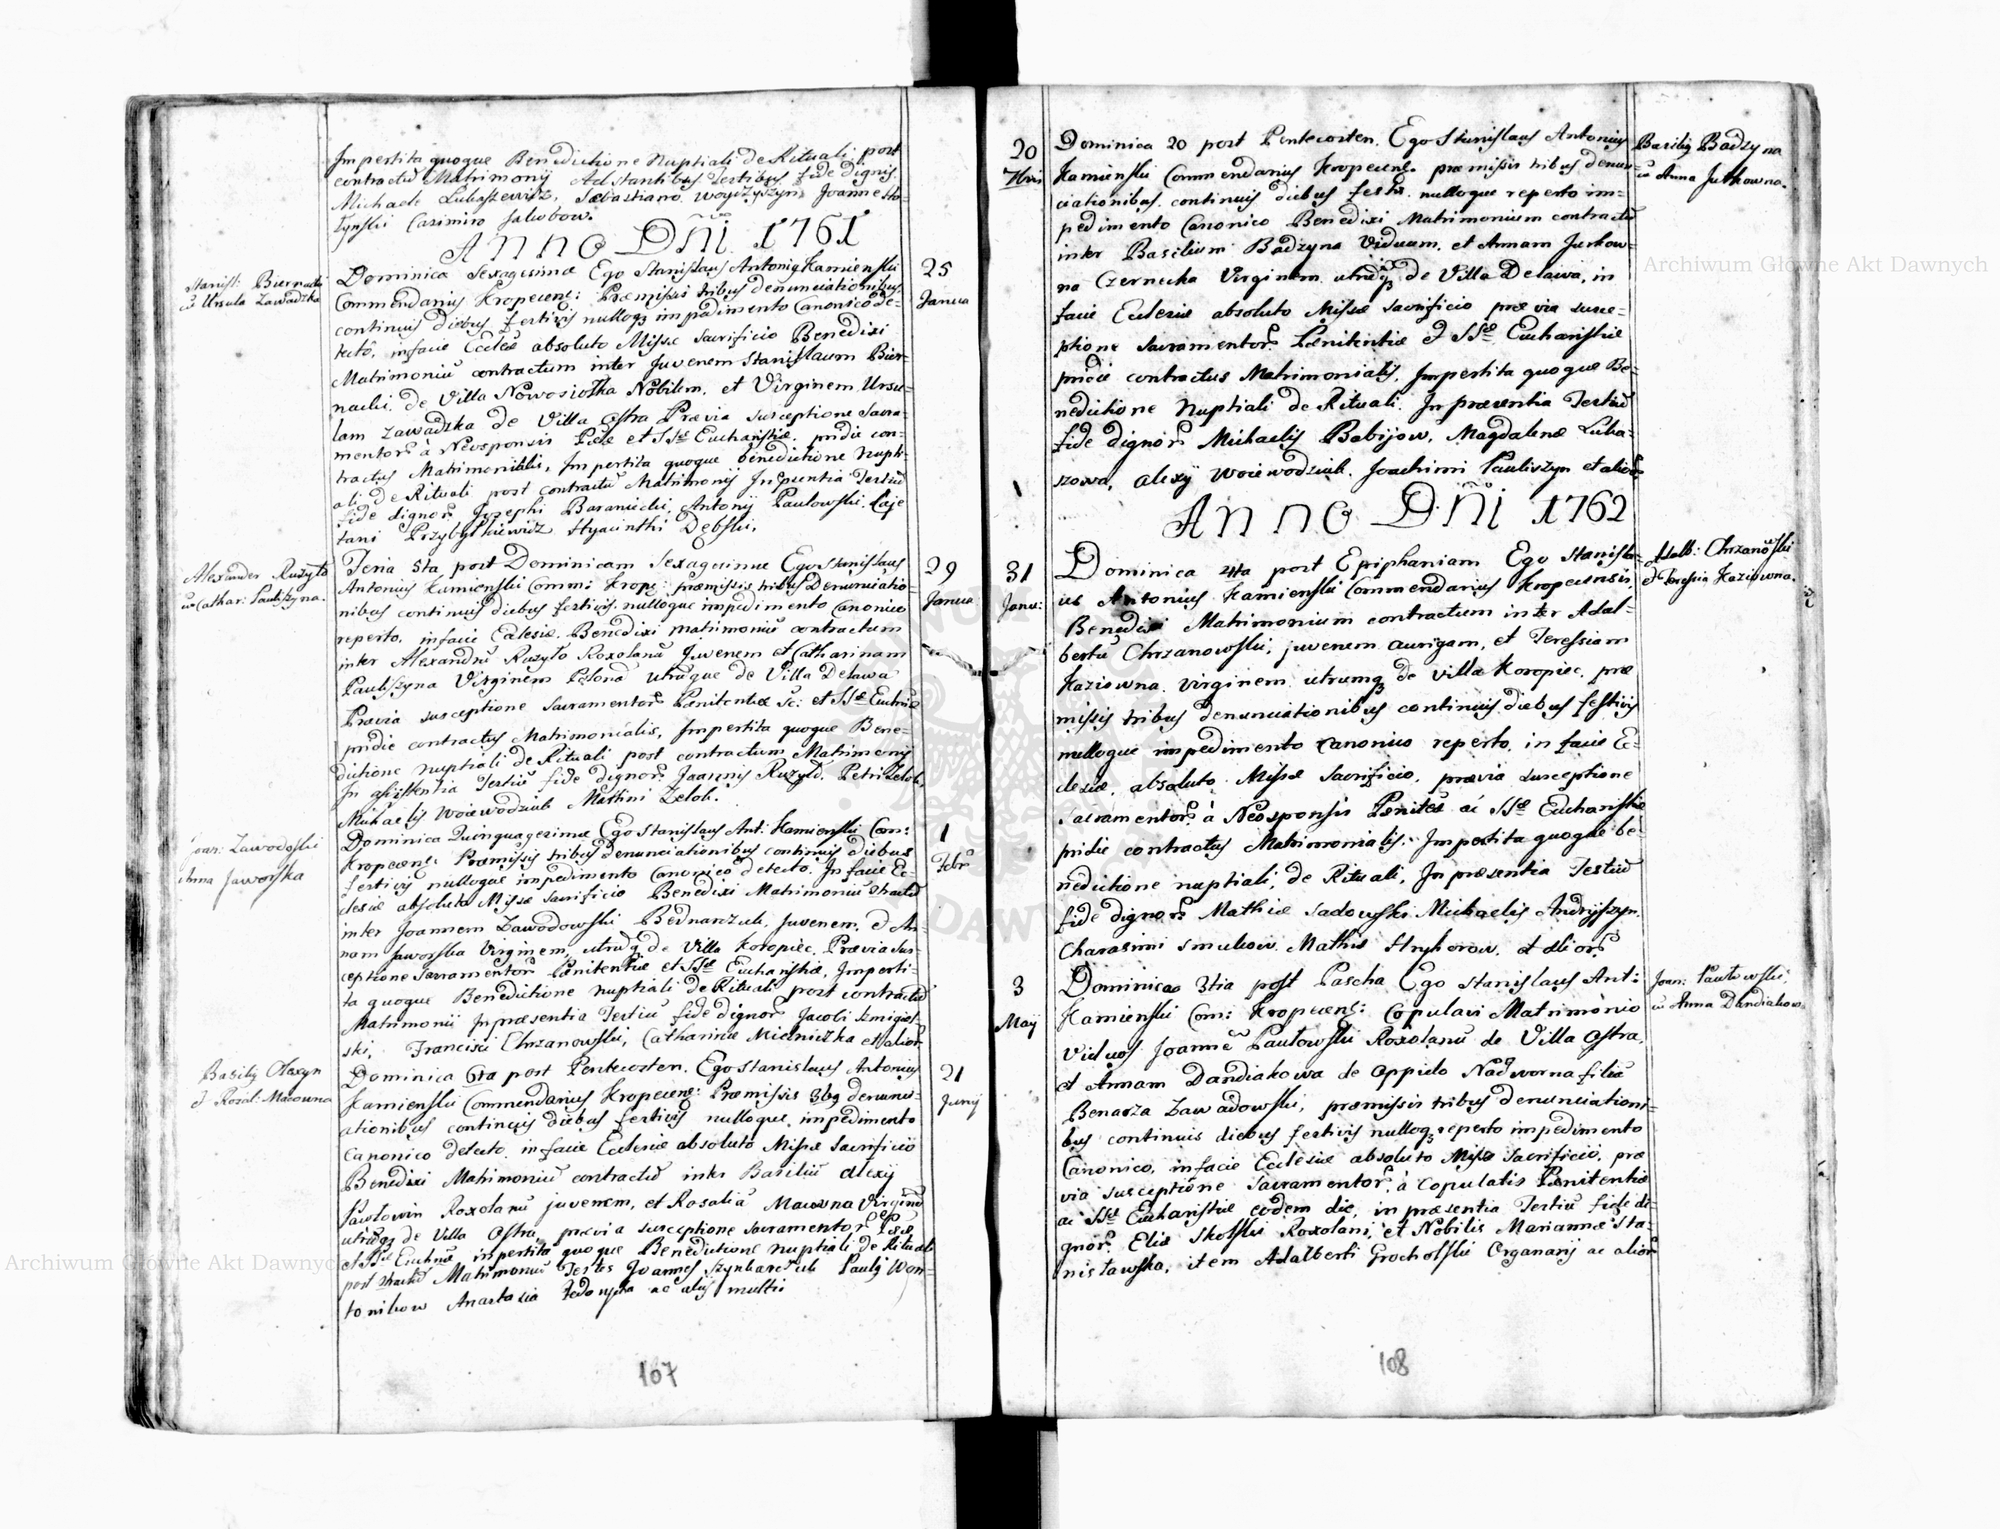 Impertita quoque Benedictione Nuptiali de Rituali post
contractū Matrimonij Adstantibus Testibus fide dignis
Michaele Lukasiewicz, Sebastiano Joanne
Casimiro Jakubow.
ANNO DÑI 1761
Stanisł: Biernacki
cū Ursula Zawadzka
25
Janua
Dominica Sexagesimæ Ego Stanislaus Antonig Kamienski
Commendarius Kropecens: Præmissis tribus denunciationibus
continuis diebus festivis nulloq3 impedimento Canonico de-
tecto, in facie Eccleæ absoluto Missæ Sacrificio Benedixi
Matrimoniū contractum inter Juvenem Stanislaum Bier-
nacki de Villa Nowosiołka Nobilem, et Virginem Ursu-
lam Zawadzka de Villa Ostra Prævia susceptione Sacra-
mentor: à Neosponsis Pœæ et SSæ Eucharistiæ, pridie con-
tractus Matrimonialis, Impertita quoque benedictione nupti-
ali de Rituali post contractū Matrimonij In Præsentia Testiū
fide dignor: Josephi Baraniecki, Antonij Pawłowski, Caje
tani Przybysłkiewicz Hyacinthi Dębski.
Alexander Ruzyło
cū Cathar: Pauliszyna.
29
Janua
Feria 5ta post Dominicam Sexagesimæ Ego Stanislaus
Antonius Kamienski Comm: Krope: præmissis tribus Denunciatio-
nibus continuis diebus festivis nulloque impedimento Canonico
reperto, in facie Eclesiæ. Benedixi matrimoniū contractum
inter Alexandrū Ruzyło Roxolanū Juvenem et Catharinam
Pauliszyna Virginem utrūque de Villa Delawa
Prævia susceptione Sacramentor: Pænitentiæ Sc: et SSæ Euchriæ
pridie contractus Matrimonialis, Impertita quoque Bene-
dictione nuptiali de Rituali post contractum Matrimonij
In assistentia Testiū fide dignor: Ruzyło, Petri Zelob,
Michaelis Woiewodziak Martini Zelob.
Joan: Zawodoski
Anna Jaworska
1
Febr
Dominica Quinquagesimæ Ego Stanislaus Ant: Kamienski Com:
Kropecens: Præmissis tribus denunciationibus continuis diebus
festivis nulloque impedimento Canonico detecto. In facie Ec-
clesiæ absoluto Missæ Sacrificio Benedixi Matrimoniū
inter Joannem Zawodowski Bednarzuk, Juvenem, et An-
nam Jaworska Virginem, utrūq3 de Villa Koropiec. Prævia sus-
ceptione Sacramentor: Pænitentiæ et SSæ Eucharistiæ, Imperti-
ta quoque Benedictione nuptiali de Rituali post contractū
Matrimonii In præsentia Testiū fide dignor: Jacobi
ski, Francisci Chrzanowski, Catharinæ Mielniczka et alior:
Basilig Olaxyn
et Rozal: Macowna
21
Junij
Dominica 6ta post Pentecosten. Ego Stanislaus Antonius
Kamienski Commendarius Kropecens: Præmissis 3bg denunci-
ationibus continuis diebus festivis nulloque impedimento
Canonico detecto, in facie Ecclesiæ absoluto Missæ Sacrificio
Benedixi Matrimoniū contractū inter Basiliū Alexij
Pawłowin Roxolanū juvenem, et Rosaliā Macowna Virginē
utrūq3 de Villa Ostra, prævia susceptione Sacramentor: Pæe
et SSæ Euchriæ impertita quoque Benedictione nuptiali de Rituali
post Matrimoniū Testes Joannes Szynkarczuk Paulg Won-
tonikow Anastasia ac alijs multis
107
20
7bris
Basilig Badzyna
cū Anna Jurkowna.
Dominica 20 post Pentecosten. Ego Stanislaus Antonius
Kamienski Commendarius Kropecens. præmissis tribus denun-
ciationibus, continuis diebus festis, nulloque reperto im-
pedimento Canonico Benedixi Matrimonium contractū
inter Basilium Badzyna Viduum, et Annam Jurkow-
na Czernecka Virginem, utrūq3 de Villa Delawa, in
facie Eclesiæ absoluto Missæ Sacrificio prævia susce-
ptione Sacramentor: Pænitentiæ et SSæ Eucharistiæ
pridie contractus Matrimonialis, Impertita quoque Be-
nedictione Nuptiali de Rituali. In præsentia Testiū
fide dignor: Michaelis Babijow, Magdalenæ Luka-
szowa, Alexij Woiewodziak Joachimi Pauliszyn et alior:
ANNO DÑI 1762
31
Janu:
Adalb: Chrzanowski
et Teressia Kaziowna.
Dominica 4ta post Epiphaniam Ego Stanisla-
us Antonius Kamienski Commendarius Kropecensis
Benedixi Matrimonium contractum inter Adal-
bertū Chrzanowski, juvenem aurigam, et Teressiam
Kaziowna virginem utrumq3 de villa Koropiec, præ
missis tribus denunciationibus continuis diebus festivis
nulloque impedimento Canonico reperto, in facie Ec-
clesiæ, absoluto Missæ Sacrificio, prævia susceptione
Sacramentor: à Neosponsis Pænitæ ac SSæ Eucharistiæ
pridie contractus Matrimonialis. Impertita quoque be-
nedictione nuptiali, de Rituali, In præsentia Testiū
fide dignor: Mathiæ Sadowski Michaelis Andryszyn,
Charasimi Smukow Mathiæ Hrykorow, et alior:
3
Maij
Joan: Pawłowski
cū Anna Dandiakowa
Dominica 3tia post Pascha Ego Stanislaus Ant:
Kamienski Com: Kropecens: Copulavi Matrimonio
Viduos Joannē Pawłowski Roxolanū de Villa Ostra,
et Annam Dandiakowa de Oppido Nadworna filia
Zawadowski, præmissis tribus denunciationi-
bus continuis diebus festivis nulloq3 reperto impedimento
Canonico, in facie Ecclesiæ absoluto Missæ Sacrificio, præ
via susceptione Sacramentor: à Copulatis Pænitentiæ
ac SSæ Eucharistiæ eodem die, in præsentia Testiū fide di-
gnor: Eliæ Skolski Roxolani, et Nobilis Mariannæ Sta-
nisławska, item Adalberti Grocholski Organarij ac alior:
108
Archiwum Główne Akt Dawnych
Archiwum Główne Akt Dawnych